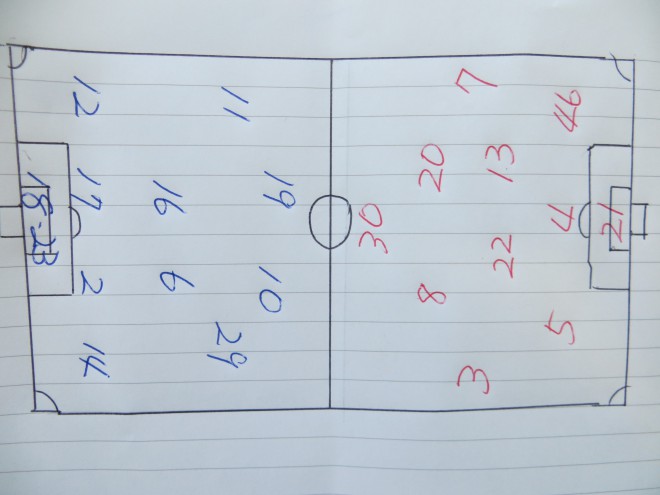 18-23
12 17 2 14
16 6
11 29
19 10
30
8 20
3 22 13 7
5 4 46
21